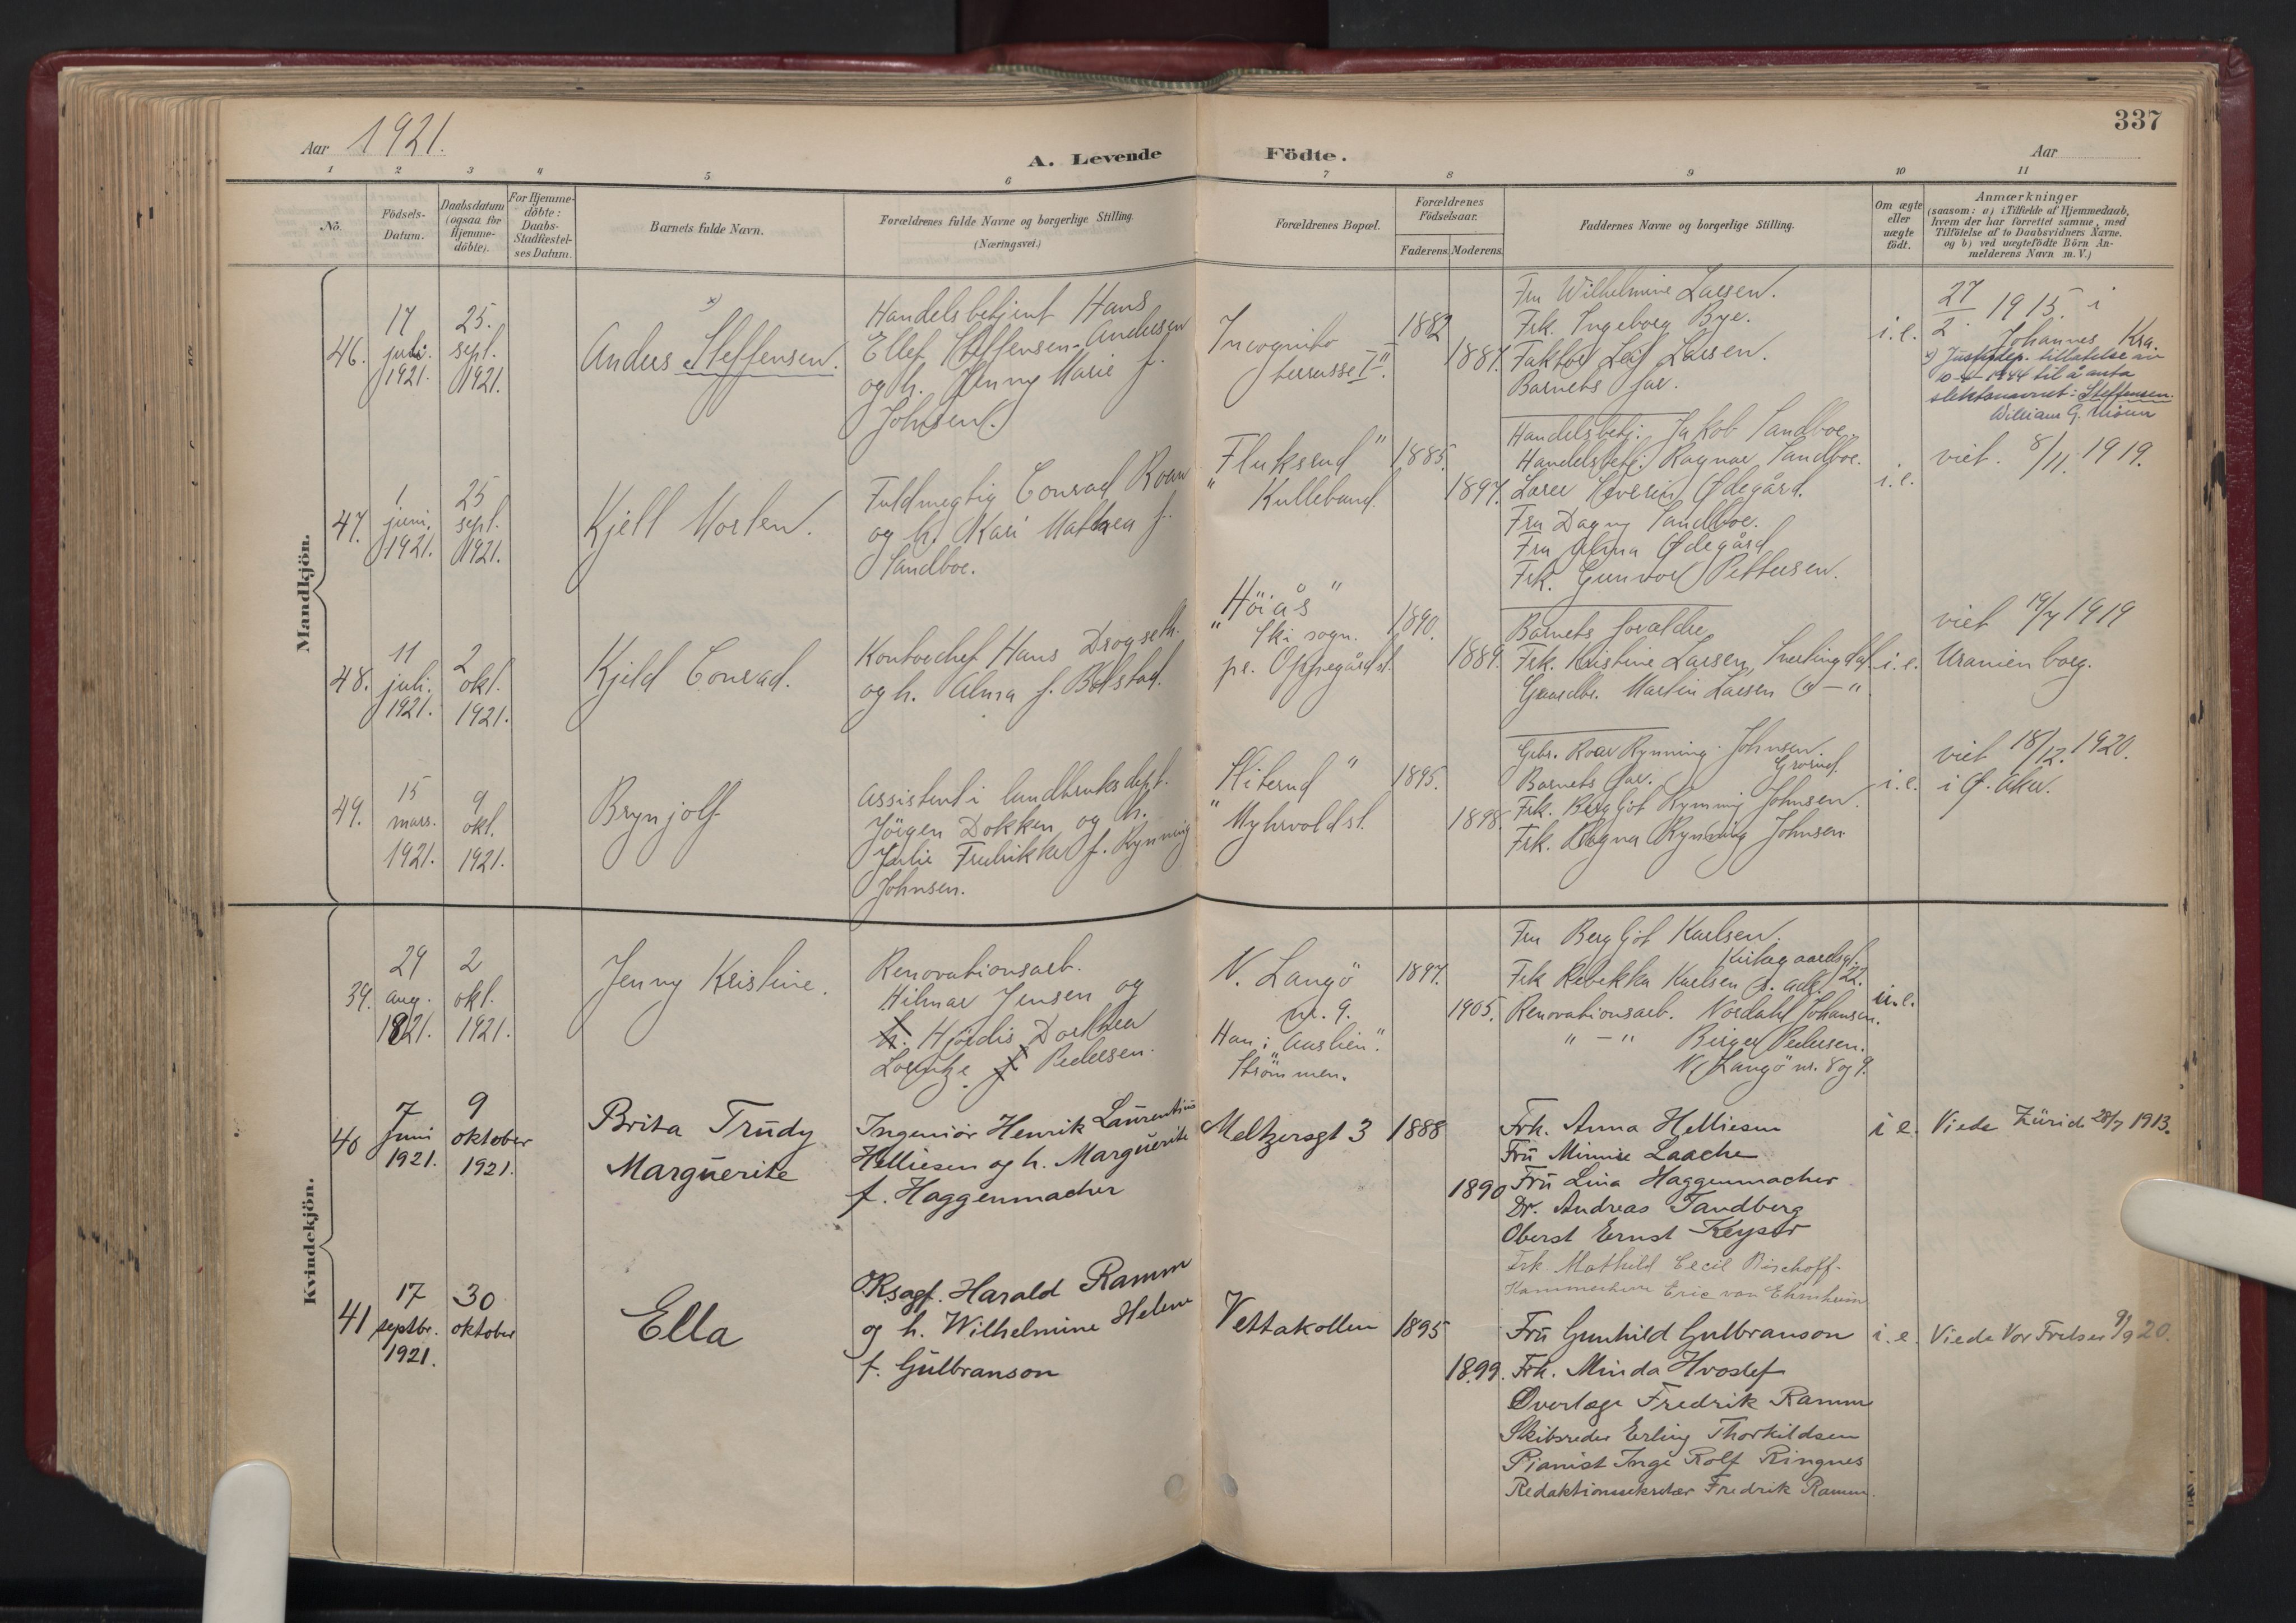 337
Aar 1921.
A. Levende Födte.
Aar
1 2 3 4 5 6 7 8 9 10 11
No.
Födsels-
Datum.
Daabsdatum
(ogsaa for
Hjemme-
döbte).
For Hjemme-
döbte:
Daabs-
Stadfæstel-
ses Datum.
Barnets fulde Navn.
Forældrenes fulde Navne og borgerlige Stilling.
(Næringsvei.)
Forældrenes Bopæl.
Forældrenes
Födselsaar.
Faderens. Moderens.
Faddernes Navne og borgerlige Stilling.
Om ægte
eller
uægte
födt.
Anmærkninger
(saasom: a) i Tilfælde af Hjemmedaab,
hvem der har forrettet samme, med
Tilföielse af to Daabsvidners Navne,
og b) ved uægtefödte Börn An-
melderens Navn m. V.)
Mandkjön.
46.
17
juli.
1921.
25.
sept.
1921.
x)
Anders Steffensen.
Handelsbetjent Hans
Ellef Steffensen-Andersen
og h. Jenny Marie f.
Johnsen.
Incognito
terrasse I
1882
1887.
Fru Wilhelmine Larsen.
Frk. Ingeborg Bye.
Faktor Leif Larsen.
Barnets far.
i. e.
27/2 1915. i
Johannes Kra.
x) Justisdep. tillatelse av
10-4-1944 til å anta
slektsnavnet: Steffensen.
47.
1
juni.
1921.
25
sept.
1921.
Kjell Morten.
Fuldmegtig Conrad Roan
og h. Kari Mathea f.
Sandboe.
"Fluksrud"
Kullebund.
1885.
1897.
Handelsbetj. Jakob Sandboe.
Handelsbetj. Ragnar Sandboe.
Lærer Severin Ødegård.
Fru Dagny Sandboe.
Fru Alma Ødegård
Frk. Gunvor Pettersen.
i. e.
viet. 8/11. 1919.
48.
11
juli.
1921.
2
okt.
1921.
Kjeld Conrad.
Kontorchef Hans Drogseth.
og h. Alma f. Bolstad.
"Höiås"
Ski sogn.
pr. Oppegård st.
1890.
1889.
Barnets forældre
Frk. Kristine Larsen, Svertingdal
Gaardbr. Martin Larsen " — "
i. e.
viet 19/7 1919
Uranienborg.
49.
15
mars.
1921.
9
okt.
1921.
Brynjolf
Assistent i landbruksdept.
Jörgen Dokken og h.
Julie Fredrikke f. Rynning
Johnsen.
"Myhrvold st.
1895.
1898.
Gbr. Roar Rynning Johnsen.
Grorud.
Barnets far.
Frk. Bergljot Rynning Johnsen.
Frk. Ragna Rynning Johnsen
i. e.
viet 18/12. 1920.
i Ø. Aker.
Kvindekjön.
39.
29
aug.
1921.
2
okt.
1921.
Jenny Kristine.
Renovationsarb.
Hilmar Jensen og
h. Hjördis Dorthea
Lorentze f. Pedersen.
N. Langö
nr. 9.
Han i "Aaslien".
Strömmen.
1897.
1905.
Fru Bergljot Karlsen.
Frk Rebekka Karlsen
22.
Renovationsarb. Nordahl Johansen.
" — " Birger Pedersen.
N. Langö nr. 8 og 9.
u. e.
40
7
Juni
1921.
9
oktober
1921.
Brita Trudy
Marguerite
Ingeniör Henrik Laurentius
Helliesen og h. Marguerite
f. Haggenmacher
Meltzersgt 3
1888
1890
Frk. Anna Helliesen
Fru Minnie Laache
Fru Lina Haggenmacher
Dr. Andreas Tandberg
Oberst Ernst Keyser
Frk Mathild Cecil Bischoff.
Kammerherre Eric von Ehrnheim
i e.
Viede Zürich 28/7 1913.
41
17
septbr.
1921.
30
oktober
Ella
O.Rsagf. Harald Ramm
og h. Wilhelmine Helene
f. Gulbranson
Vettakollen
1895
1899.
Fru Gunhild Gulbranson
Frk. Minda Hvoslef
Overlæge Fredrik Ramm
Skibsreder Erling Thorkildsen
Pianist Inge Rolf Ringnes
Redaktionssekretær Fredrik Ramm.
i. e.
Viede Vor Frelser 9/9 20.